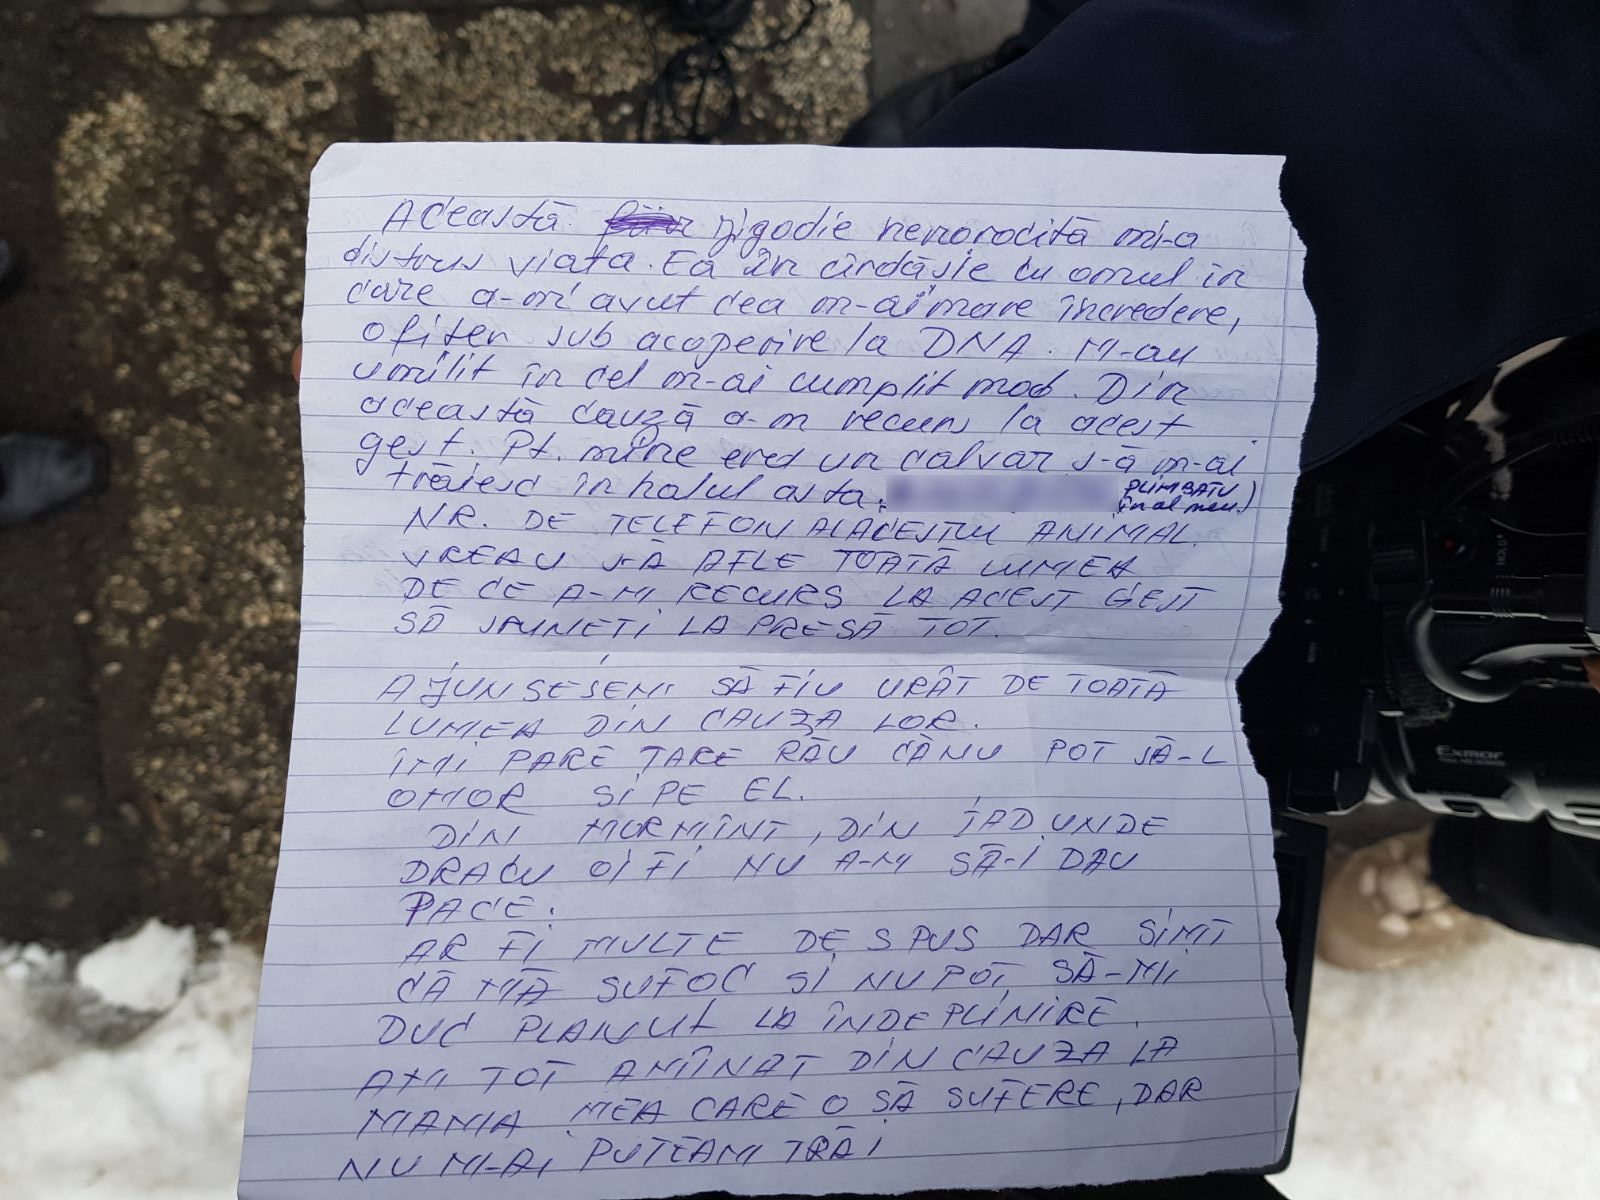 Această jigodie nenorocită mi-a
distrus viața. Ea în cîrdășie cu omul în
care a-m avut cea m-ai mare încredere,
ofițer sub acoperire la DNA. M-au
umilit în cel m-ai cumplit mod. Din
această cauză a-m recurs la acest
gest. Pt. mine era un calvar s-ă m-ai
trăiesc în halul asta.
PLIMBATU
în al meu)
NR. DE TELEFON AL ACESTUI ANIMAL.
VREAU S-Ă AFLE TOATĂ LUMEA
DE CE A-M RECURS LA ACEST GEST
SĂ SPUNEȚI LA PRESĂ TOT.
AJUNSESEM SĂ FIU URÂT DE TOATĂ
LUMEA DIN CAUZA LOR.
ÎMI PARE TARE RĂU CĂ NU POT SĂ-L
OMOR SI PE EL.
DIN MORMÎNT, DIN IAD UNDE
DRACU OI FI NU A-M SĂ-I DAU
PACE.
AR FI MULTE DE SPUS DAR SIMT
CĂ MĂ SUFOC SI NU POT SĂ-MI
DUC PLANUL LA ÎNDEPLINIRE.
AM TOT AMÎNAT DIN CAUZA LA
MAMA MEA CARE O SĂ SUFERE, DAR
NU M-AI PUTEAM TRĂI
Exmor
HOLD